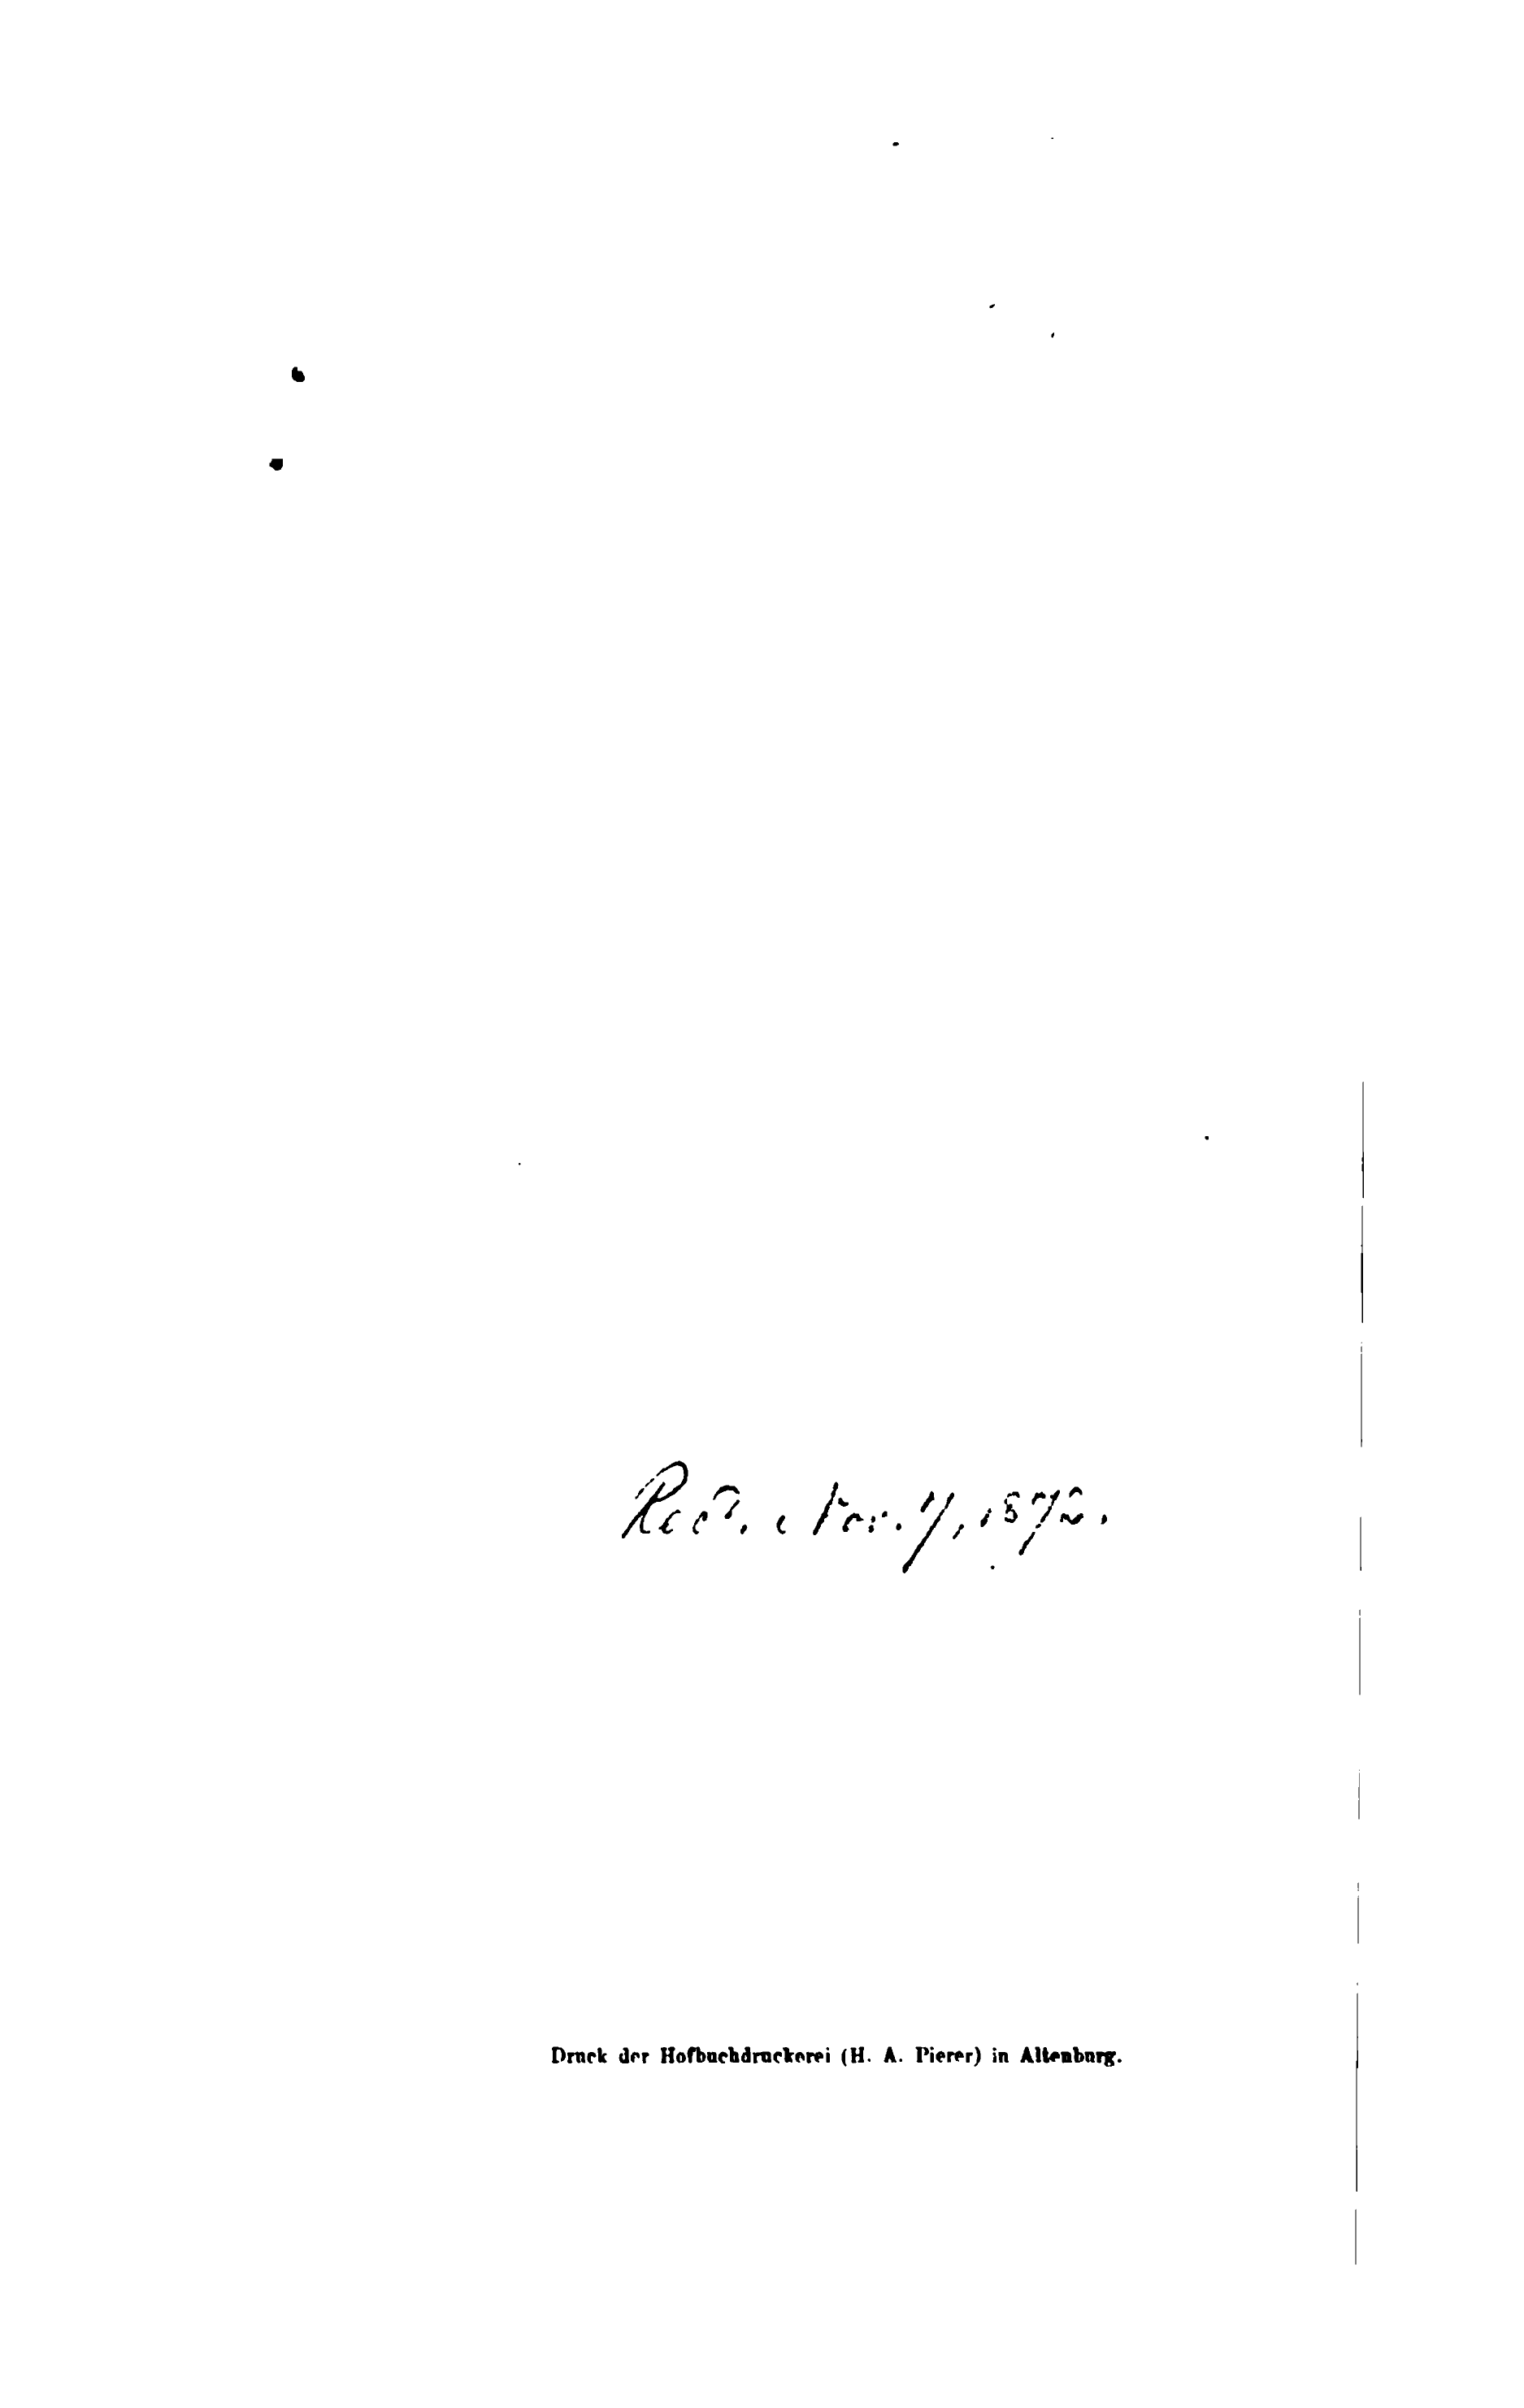 Rec'd. Nov. 7, 1872.
Druck der Hofbuchdruckerei (H. A. Pierer) in Altenburg.